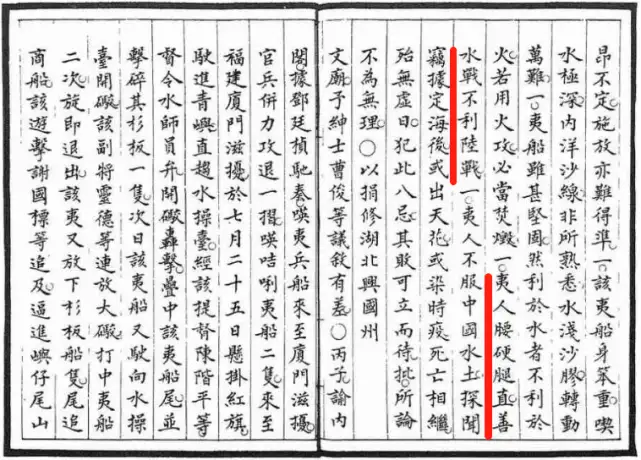 昂不定施放亦難得準一該夷船身笨重喫
水極深內洋沙線非所熟悉水淺沙膠轉動
萬難一夷船雖甚堅固然利於水者不利於
火若用火攻必當焚燬一夷人腰硬腿直善
水戰不利陸戰一夷人不服中國水土探聞
竊據定海後或出天花或染時疫死亡相繼
殆無虛日犯此八忌其敗可立而待批所論
不為無理○以捐修湖北興國州
文廟予紳士曹俊等議敘有差○丙子諭內
閣據鄧廷楨馳奏𠸄夷兵船來至廈門滋擾
官兵併力攻退一摺𠸄咭唎夷船二隻來至
福建廈門滋擾於七月二十五日懸掛紅旗
駛進青嶼直趨水操臺經該提督陳階平等
督令水師員弁開礮轟擊疊中該夷船尾並
擊碎其杉板一隻次日該夷船又駛向水操
臺開礮該副將靈德等連放大礮打中夷船
二次旋即退出該夷又放下杉板船隻尾追
商船該遊擊謝國標等追及逼進嶼仔尾山